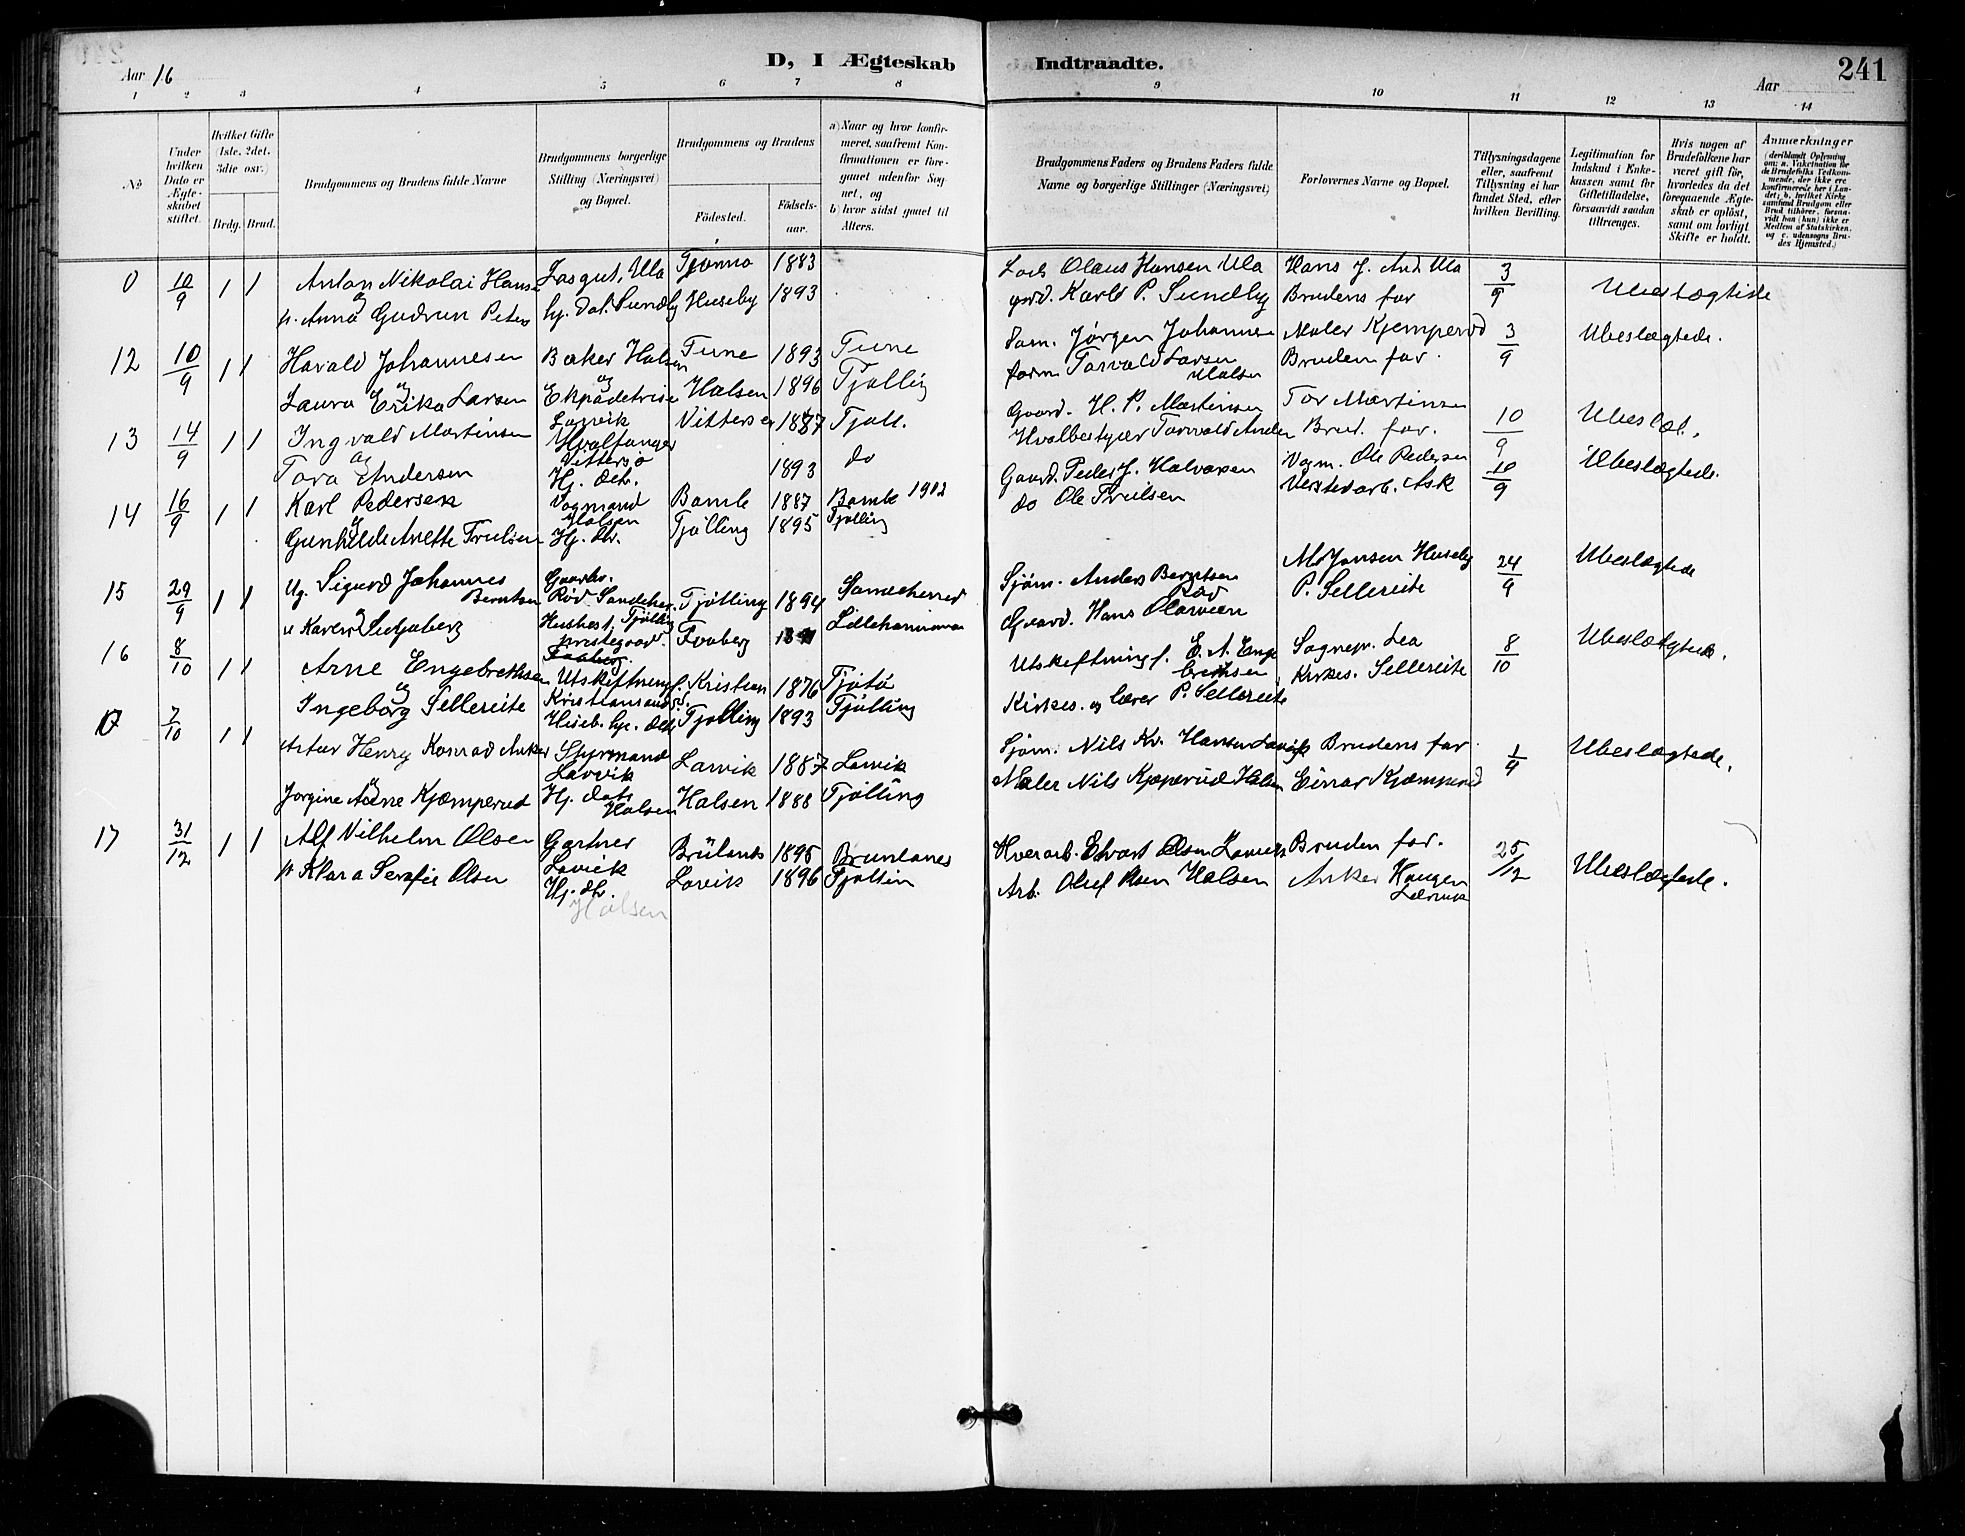 D, I Ægteskab Indtraadte.
241
Aar 16
Aar
1 2 3 4 5 6 7 8 9 10 11 12 13 14
No
Under hvilken Dato er Ægteskabet stiftet.
Hvilket Gifte (1ste, 2det, 3die osv.)
Brdg. Brud.
Brudgommens og Brudens fulde Navne
Brudgommens borgerlige Stilling (Næringsvei) og Bopæl.
Brudgommens og Brudens
Födested.
Födselsaar.
a) Naar og hvor konfirmeret, saafremt Konfirmationen er foregaaet udenfor Sognet, og
b) hvor sidst gaaet til Alters.
Brudgommens Faders og Brudens Faders fulde Navne og borgerlige Stillinger (Næringsvei)
Forlovernes Navne og Bopæl.
Tillysningsdagene eller, saafremt Tillysning ei har fundet Sted, efter hvilken Bevilling.
Legitimation for Indskud i Enkekassen samt for Giftetilladelse, forsaavidt saadan tiltrænges.
Hvis nogen af Brudefolkene har været gift för, hvorledes da det foregaaende Ægteskab er oplöst, samt om lovligt Skifte er holdt.
Anmærkninger
(deriblandt Oplysning om: a. Vakcination for de Brudefolks Vedkommende, der ikke ere konfirmerede her i Landet; b. hvilket Kirkesamfund Brudgom eller Brud tilhörer, forsaavidt han (hun) ikke er Medlem af Statskirken, og c. udensogns Brudes Hjemsted.)
0 10/9 1 1 Anton Nikolai Hans Losgut, Ula Tjømø 1883 Lods Olaus Hansen Ula Hans J. And. Ula 3/9 Ubeslægtede
og
p. Anna Gudrun Peters hj. dat. Sundby Huseby 1893 grd. Karl P. Sundby Brudens far
12 10/9 1 1 Harald Johannesen Baker Halsen Tune 1893 Tune Jørgen Johanne Maler Kjemperud 3/9 Ubeslægtede.
og
Laura Erika Larsen Halsen 1896 Tjølling form Torvald Larsen Halsen Bruden far
13 14/9 1 1 Ingvald Martinsen Larvik Hvalfanger Vittersø 1887 Tjøll. Gaard. H. P. Martinsen Tor Martinsen 10/9 Ubeslæt.
og
Tora Andersen Vittersø Hj. dtr. 1893 do Hvalbestyrer Torvald Ander Brud. far.
14 16/9 1 1 Karl Pedersen Vogmand Halsen Bamle 1887 Bamle 1902 Gaard. Peder J. Halvorsen Vogm. Ole Pedersen 10/9 Ubeslægtede.
og
Gunhilde Anette Trulsen Hj. dtr. Tjølling 1895 Tjølling do Ole Trulsen Verstedarb. Ask
15 29/9 1 1 Ug. Sigurd Johannes Berntsen Gaardbr. Rød Sandeher. Tjølling 1894 Sandeherred Sjøm. Anders Berntsen Rød M. Jonsen Huseby 24/9 Ubeslægtede
Husbest. Tjølling prestegaard. Faaberg Faaberg Lillehammer Gaard. Hans P. Sellereite
16 8/10 1 1 Arne Engebrethsen Utskiftningsf. Kristiansand Kristian 1876 Tjøtø Utskiftningsf. E. A. Enge Sognepr. Lea 8/10 Ubeslægtede.
og
Ingeborg Sellereite Huseb. hj. dtr. Tjølling 1893 Tjølling Kirkes. og lærer P. Sellereite Kirkes. Sellereite
17 7/10 1 1 Artur Henry Konrad Anker Styrmand Larvik Larvik 1887 Larvik Sjøm. Nils Kr. Hansen Larvik Brudens far 1/9 Ubeslægtede.
Jorgine Kjæmperud Hj. dats Halsen Halsen 1888 Tjølling Maler Nils Kjæperud Halsen Einar Kjæmperud
17 31/12 1 1 Alf Vilhelm Olsen Gartner Larvik Brünlanes 1895 Brunlanes Olsen Larvik Bruden far. 25/12 Ubeslægtede.
p Klara Serafie Olsen Hj. dtr. Halsen Larvik 1896 Tjøllin Arb. Oluf Olsen Halsen Anker Haugen Larvik